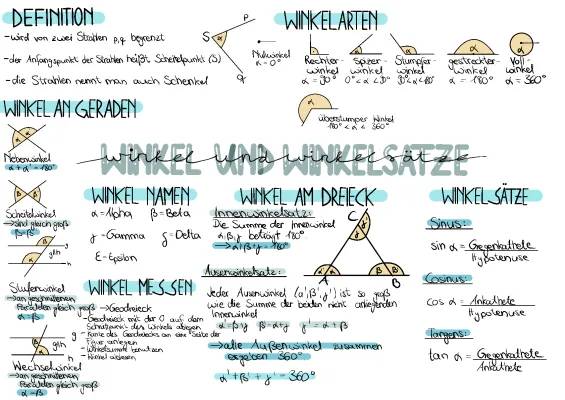 DEFINITION
-wird von zwei Strahlen p,q begrenzt
-der Anfangspunkt der Strahlen heißt Scheitelpunkt (S)
-die Strahlen nennt man auch Schenkel
S α p q
WINKELARTEN
Nullwinkel
α = 0°
Rechter-
winkel
α = 90°
Spitzer-
winkel
0° < α < 90°
Stumpfer-
winkel
90° < α < 180°
gestreckter-
Winkel
α = 180°
Voll-
winkel
α = 360°
überstumpfer Winkel
180° < α < 360°
WINKEL UND WINKELSÄTZE
winkel und winkelsätze
WINKEL AN GERADEN
Nebenwinkel
α + α' = 180°
Scheitelwinkel
→sind gleich groß
β = β'
g
g||h
h
Stufenwinkel
→an geschnittenen
Parallelen gleich groß
α = β
g
g||h
h
Wechselwinkel
→an geschnittenen
Parallelen gleich groß
α = β
WINKEL NAMEN
α = Alpha β = Beta
γ - Gamma δ = Delta
ε - Epsilon
WINKEL MESSEN
→Geodreieck
-Geodreieck mit der 0 auf dem
Scheitelpunkt des Winkels anlegen
- Kante des Geodreiecks an eine Seite der
Figur anlegen
- Winkelsumme benutzen
- Winkel ablesen
WINKEL AM DREIECK
Innenwinkelsatz:
Die Summe der Innenwinkel
α, β, γ beträgt 180°
→α+β+γ = 180°
A B C
Ausenwinkelsatz:
Jeder Ausenwinkel (α', β', γ') ist so groß
wie die Summe der beiden nicht anliegenden
Innenwinkel
α' = β+γ β' = α+γ γ' = α+β
→alle Außenwinkel zusammen
ergeben 360°
α' + β' + γ' = 360°
WINKELSÄTZE
Sinus:
sin α = Gegenkathete
Hypotenuse
Cosinus:
cos α = Ankathete
Hypotenuse
Tangens:
tan α = Gegenkathete
Ankathete